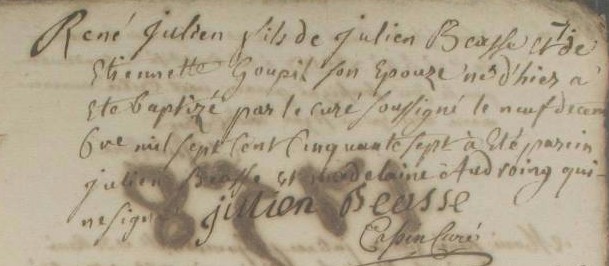 René Julien fils de julien Beasse et de
Etiennette Goupil son Epouze né d'hier a
Eté baptizé par le curé soussigné le neuf decem
bre mil sept Cent Cinquante sept à Eté parein
julien Beasse et madelaine qui
ne signe julien Beasse
Curé